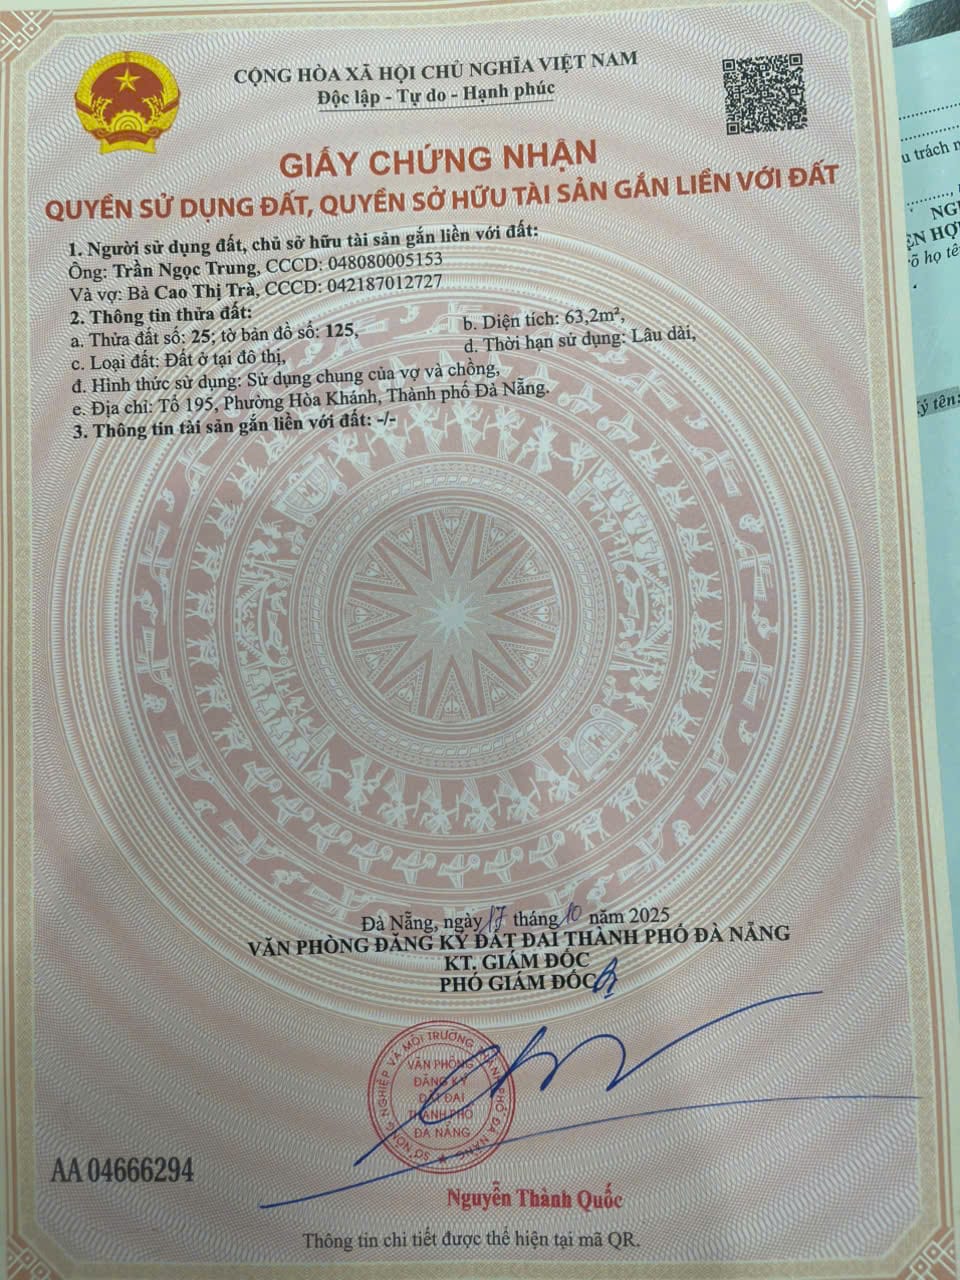 CỘNG HÒA XÃ HỘI CHỦ NGHĨA VIỆT NAM
Độc lập - Tự do - Hạnh phúc
GIẤY CHỨNG NHẬN
QUYỀN SỬ DỤNG ĐẤT, QUYỀN SỞ HỮU TÀI SẢN GẮN LIỀN VỚI ĐẤT
1. Người sử dụng đất, chủ sở hữu tài sản gắn liền với đất:
Ông: Trần Ngọc Trung, CCCD: 048080005153
Và vợ: Bà Cao Thị Trà, CCCD: 042187012727
2. Thông tin thửa đất:
a. Thửa đất số: 25; tờ bản đồ số: 125,
b. Diện tích: 63,2m²,
c. Loại đất: Đất ở tại đô thị,
d. Thời hạn sử dụng: Lâu dài,
đ. Hình thức sử dụng: Sử dụng chung của vợ và chồng,
e. Địa chỉ: Tổ 195, Phường Hòa Khánh, Thành phố Đà Nẵng.
3. Thông tin tài sản gắn liền với đất: -/-
Đà Nẵng, ngày 17 tháng 10 năm 2025
VĂN PHÒNG ĐĂNG KÝ ĐẤT ĐAI THÀNH PHỐ ĐÀ NẴNG
KT. GIÁM ĐỐC
PHÓ GIÁM ĐỐC
SỞ NÔNG NGHIỆP VÀ MÔI TRƯỜNG THÀNH PHỐ ĐÀ NẴNG
VĂN PHÒNG
ĐĂNG KÝ
ĐẤT ĐAI
THÀNH PHỐ
ĐÀ NẴNG
AA 04666294
Nguyễn Thành Quốc
Thông tin chi tiết được thể hiện tại mã QR.
u trách n
NG
ỆN HỢ
õ họ tê
ý tên: